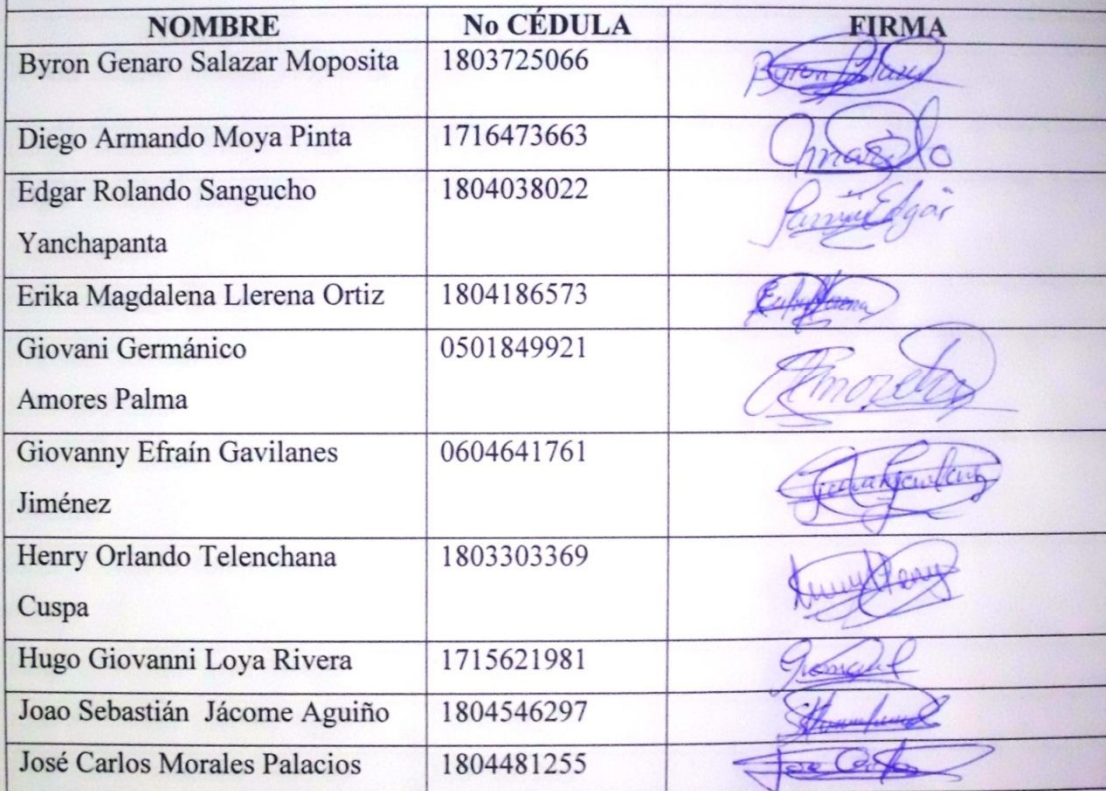 NOMBRE No CÉDULA FIRMA
Byron Genaro Salazar Moposita 1803725066 Byron
Diego Armando Moya Pinta 1716473663
Edgar Rolando Sangucho 1804038022 Edgar
Yanchapanta
Erika Magdalena Llerena Ortiz 1804186573
Giovani Germánico 0501849921
Amores Palma
Giovanny Efraín Gavilanes 0604641761
Jiménez
Henry Orlando Telenchana 1803303369 Henry
Cuspa
Hugo Giovanni Loya Rivera 1715621981
Joao Sebastián Jácome Aguiño 1804546297
José Carlos Morales Palacios 1804481255 Jose